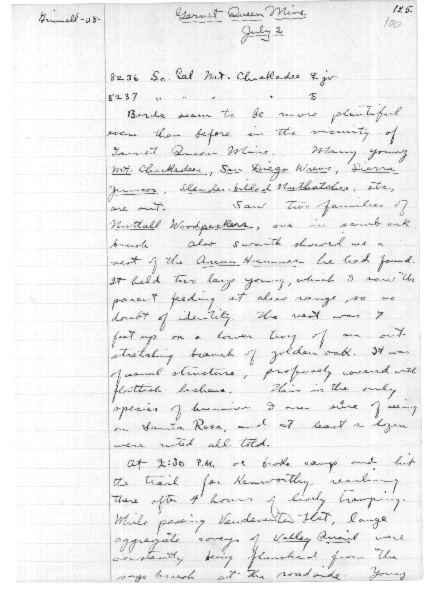 Grinnell-08.
Garnet Queen Mine
125.
100
July 2
8236 So. Cal Mt. Chickadee ♀ jv
8237 " " " "
Birds seem to be more plentiful
even than before in the vicinity of
Garnet Queen Mine. Many young
Mt. Chickadees, San Diego Wrens, Sierra
Juncos, Slender-billed Nuthatches, etc,
are out. Saw two families of
Nuttall Woodpeckers, one in scrub oak
brush. Also Swarth showed me a
nest of the Anna Hummer he had found.
It held two large young, which I saw the
parent feeding at close range, so no
doubt of identity. The nest was 7
feet up on a lower twig of an out-
stretching branch of golden oak. It was
of usual structure, profusely covered with
whitish lichens. This is the only
species of hummer I am sure of seeing
on Santa Rosa, and at least a dozen
were noted all told.
At 2:30 P.M. we broke camp and hit
the trail for Kenworthy, reaching
there after 4 hours of lively tramping.
While passing Vandeventer Flat, large
aggregate coveys of Valley Quail were
constantly being flushed from the
sage brush at the roadside. Young